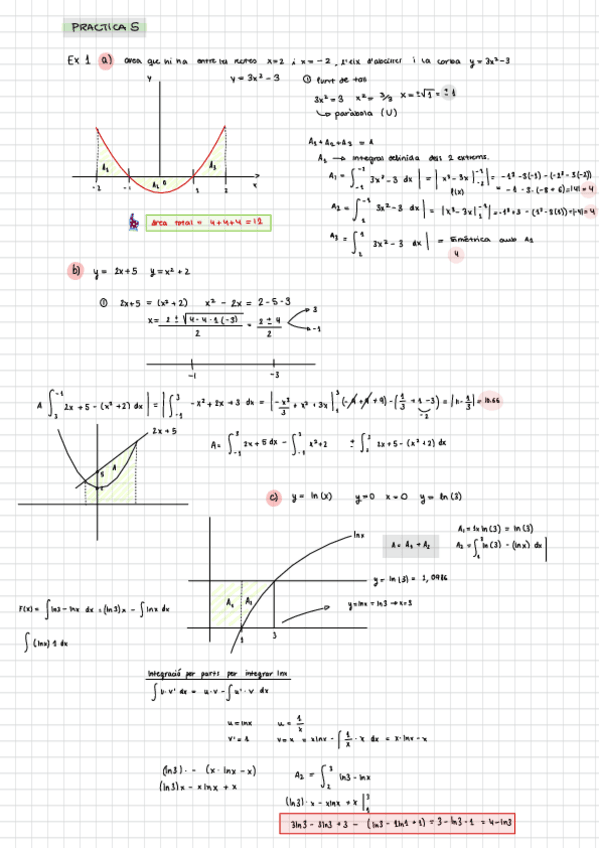 PRACTICA 5
Ex 1 a) area que hi ha entre les rectes x=2 i x=-2, l'eix d'abscisses i la corba y=3x²-3
y = 3x² - 3
① Punt de tall
3x² = 3 x² = 3/3 x = ±√1 = ±1
↳ paràbola (U)
A₁ + A₂ + A₃ = A
A₁ → integral definida dels 2 extrems.
A₁ = | ∫₋₂⁻¹ 3x² - 3 dx | = | x³ - 3x |₋₂⁻¹ | = -1³ - 3(-1) - (-2³ - 3(-2))
F(x) = -1 + 3 - (-8 + 6) = |4| = 4
3x² - 3 dx | = | x³ - 3x |
A₃ = | ∫₁² 3x² - 3 dx | = Simétrica amb A₁
4
y
A₁ A₂ 0 A₃
-2 -1 1 2 x
Àrea total = 4+4+4 = 12
b) y = 2x+5 y = x² + 2
① 2x+5 = (x²+2) x² - 2x = 2 - 5 - 3
x = 2 ± √4 - 4·1(-3) / 2 = 2 ± 4 / 2
3
-1
-1 -3
A ∫₃⁻¹ 2x + 5 - (x² + 2) dx | = | ∫₋₁³ -x² + 2x + 3 dx = | -x³/3 + x² + 3x |
= 10.66
2x+5
A
A = ∫₋₁³ 2x + 5 dx - ∫₋₁³ x² + 2 ± ∫ 2x + 5 - (x² + 2) dx
c) y = ln(x) y=0 x=0 y = ln(3)
A = A₁ + A₂
A₁ = 1x ln(3) = ln(3)
A₂ = ∫₁³ ln(3) - (lnx) dx |
lnx
y = ln(3) = 1,0986
A₁ A₂
y = lnx = ln3 → x=3
1 3
F(x) = ∫ ln3 - lnx dx = (ln3)x - ∫ lnx dx
∫ (lnx) 1 dx
Integració per parts per integrar lnx
∫ u·v' dx = u·v - ∫ u'·v dx
u = lnx u = 1/x
v' = 1 v = x = xlnx - ∫ 1/x · x dx = x·lnx - x
(ln3)· - (x·lnx - x)
(ln3)x - xlnx + x
A₂ = ∫₂³ ln3 - lnx
(ln3)·x - xlnx + x |₁³
3ln3 - 3ln3 + 3 - (ln3 - 1ln1 + 1) = 3 - ln3 - 1 = 4 - ln3